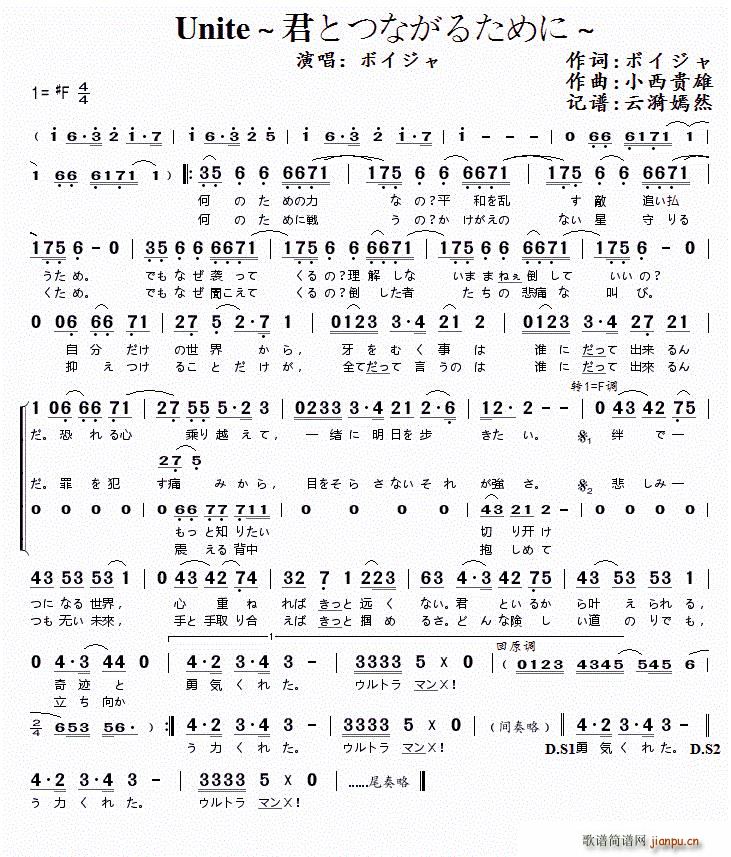 Unite ~ 君とつながるために ~
演唱: ボイジャ
作词: ボイジャ
作曲: 小西贵雄
记谱: 云漪嫣然
1= #F 4/4
( i 6·3 2 i·7 | i 6·3 2 5 | i 6·3 2 i·7 | i - - - | 0 66 6171 1
1 66 6171 1 ) 35 6 6 6671 | 175 6 6 6671 | 175 6 6 6671
何 のた めの力 なの?平 和を乱 す敵 追い払
何 のた めに戦 うの?かけがえの ない星 守りる
175 6 - 0 | 35 6 6 6671 | 175 6 6 6671 | 175 6 6 6671 | 175 6 - 0
うため。 でもなぜ襲って くるの?理解しな いままねぇ倒して いいの?
くため。 でもなぜ聞こえて くるの?倒した者 たちの悲痛な 叫び。
0 06 66 71 | 27 5 2·7 1 | 0123 3·4 21 2 | 0123 3·4 27 21
自分だけ の世界 から, 牙をむく事は 誰にだって出来るん
抑えつけ ることだけが, 全てだって言うのは 誰にだって出來るん
转1=F调
1 06 66 71 | 27 55 5·2 3 | 0233 3·4 21 2·6 | 12· 2 - - | 0 43 42 75
だ。恐れる心 乗り越えて, 一緒に明日を歩 きたい。 1 絆で一
27 5
だ。罪を犯 す痛みから, 目をそらさないそれ が強さ。 2 悲しみ一
0 0 0 0 | 0 66 77 711 | 0 0 0 0 | 43 21 2 - | 0 0 0 0
もっと知りたい 切り开け
震える背中 抱しめて
43 53 53 1 | 0 43 42 74 | 32 7 1 223 | 63 4·3 42 75
つになる世界, 心重ね ればきっと遠く ない。君といるから叶えられる,
つも无い未來, 手と手取り合 えばきっと掴め るさ。どんな険しい道のりでも,
1
回原调
0 4·3 44 0 | 4·2 3·4 3 - | 3333 5 X 0 | ( 0123 4345 545 6
奇迹と 勇気くれた。 ウルトラ マンX!
立ち向か
2/4 653 56· ) 4·2 3·4 3 - | 3333 5 X 0 | (间奏略) 4·2 3·4 3 -
う力くれた。 ウルトラ マンX! D.S1 勇気くれた。 D.S2
4·2 3·4 3 - | 3333 5 X 0 | ......尾奏略
う力くれた。 ウルトラ マンX!
歌谱简谱网 jianpu.cn